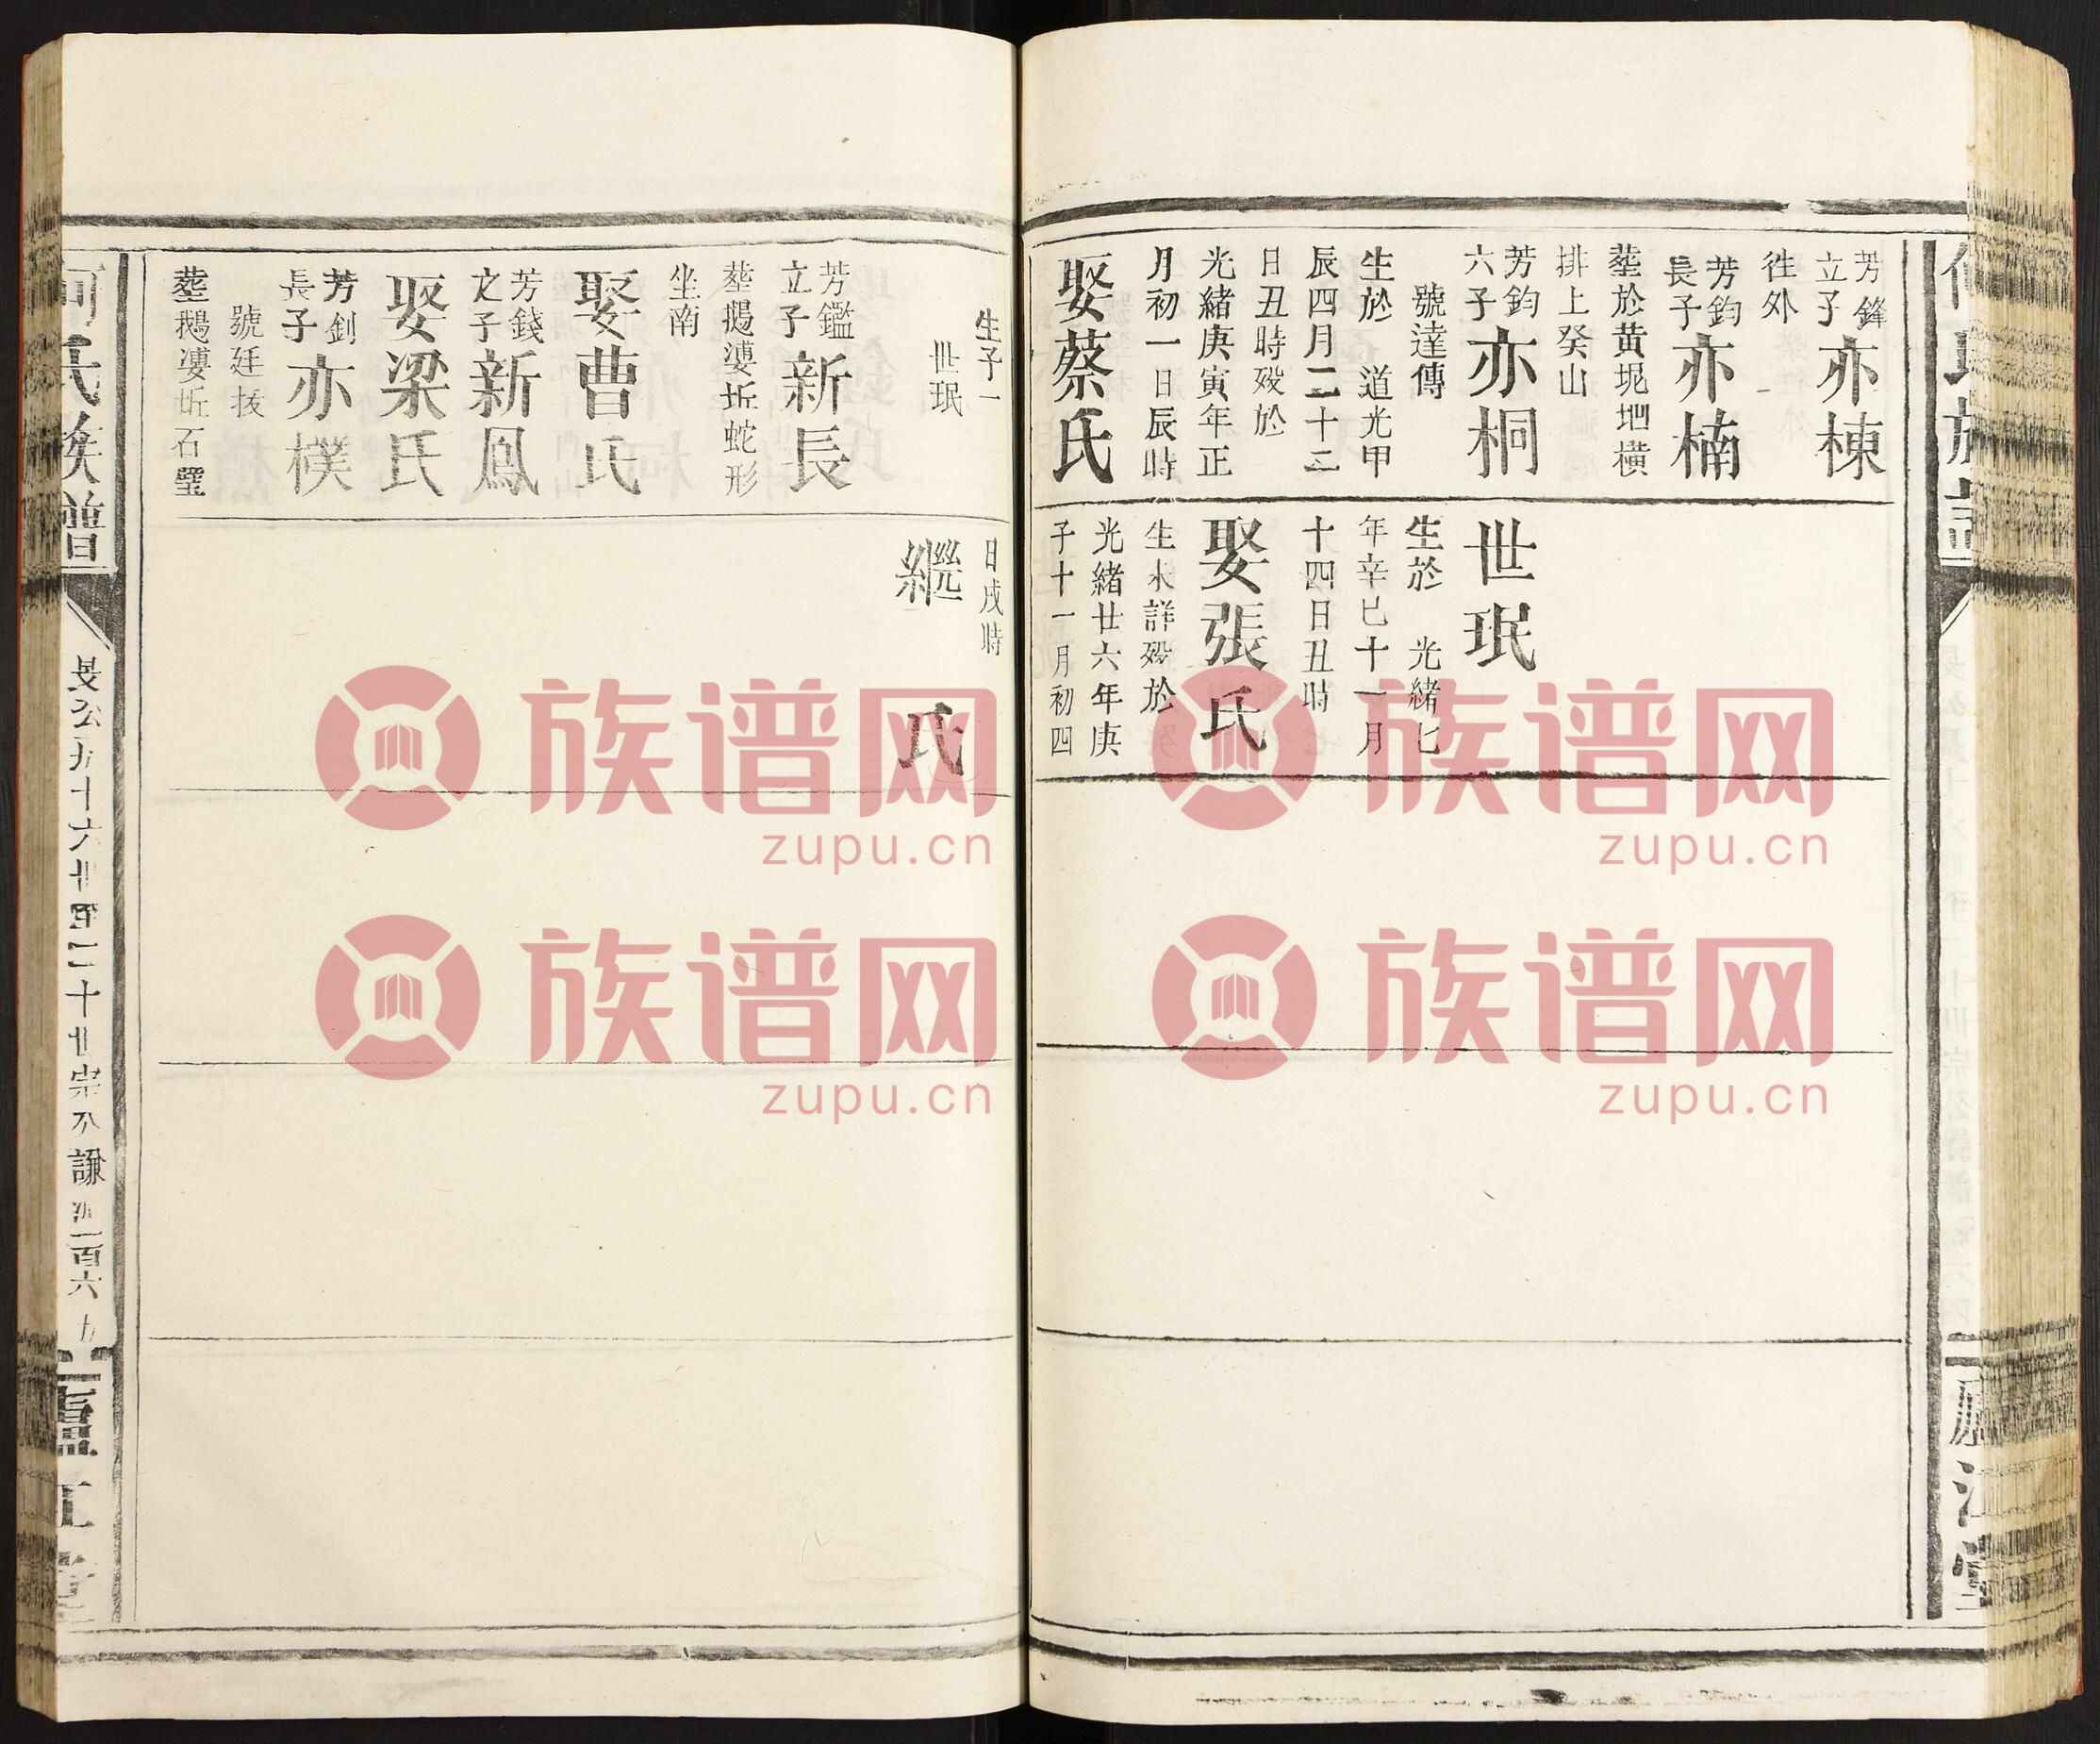 芳鋒
立子
亦棟
徃外
芳鈞
長子
亦楠
塟於黄坭地横
排上癸山
芳鈞
六子
亦桐
號達傳
生於 道光甲
辰四月二十三
日丑時殁於
光緒庚寅年正
月初一日辰時
娶蔡氏
世珉
生於 光緒七
年辛巳十一月
十四日丑時
娶張氏
生未詳殁於
光緒廿六年庚
子十一月初四
生子一
世珉
芳鑑
立子
新長
塟鵝 坵蛇形
坐南
娶曹氏
芳錢
之子
新鳳
娶梁氏
芳釗
長子
亦樸
號廷拔
塟鵝 坵石壁
日戌時
繼 氏
何氏族譜
公 十六世至二十世宗 謙 一百六
廬江堂
何氏族譜
廬江堂
族谱网
zupu.cn
族谱网
zupu.cn
族谱网
zupu.cn
族谱网
zupu.cn